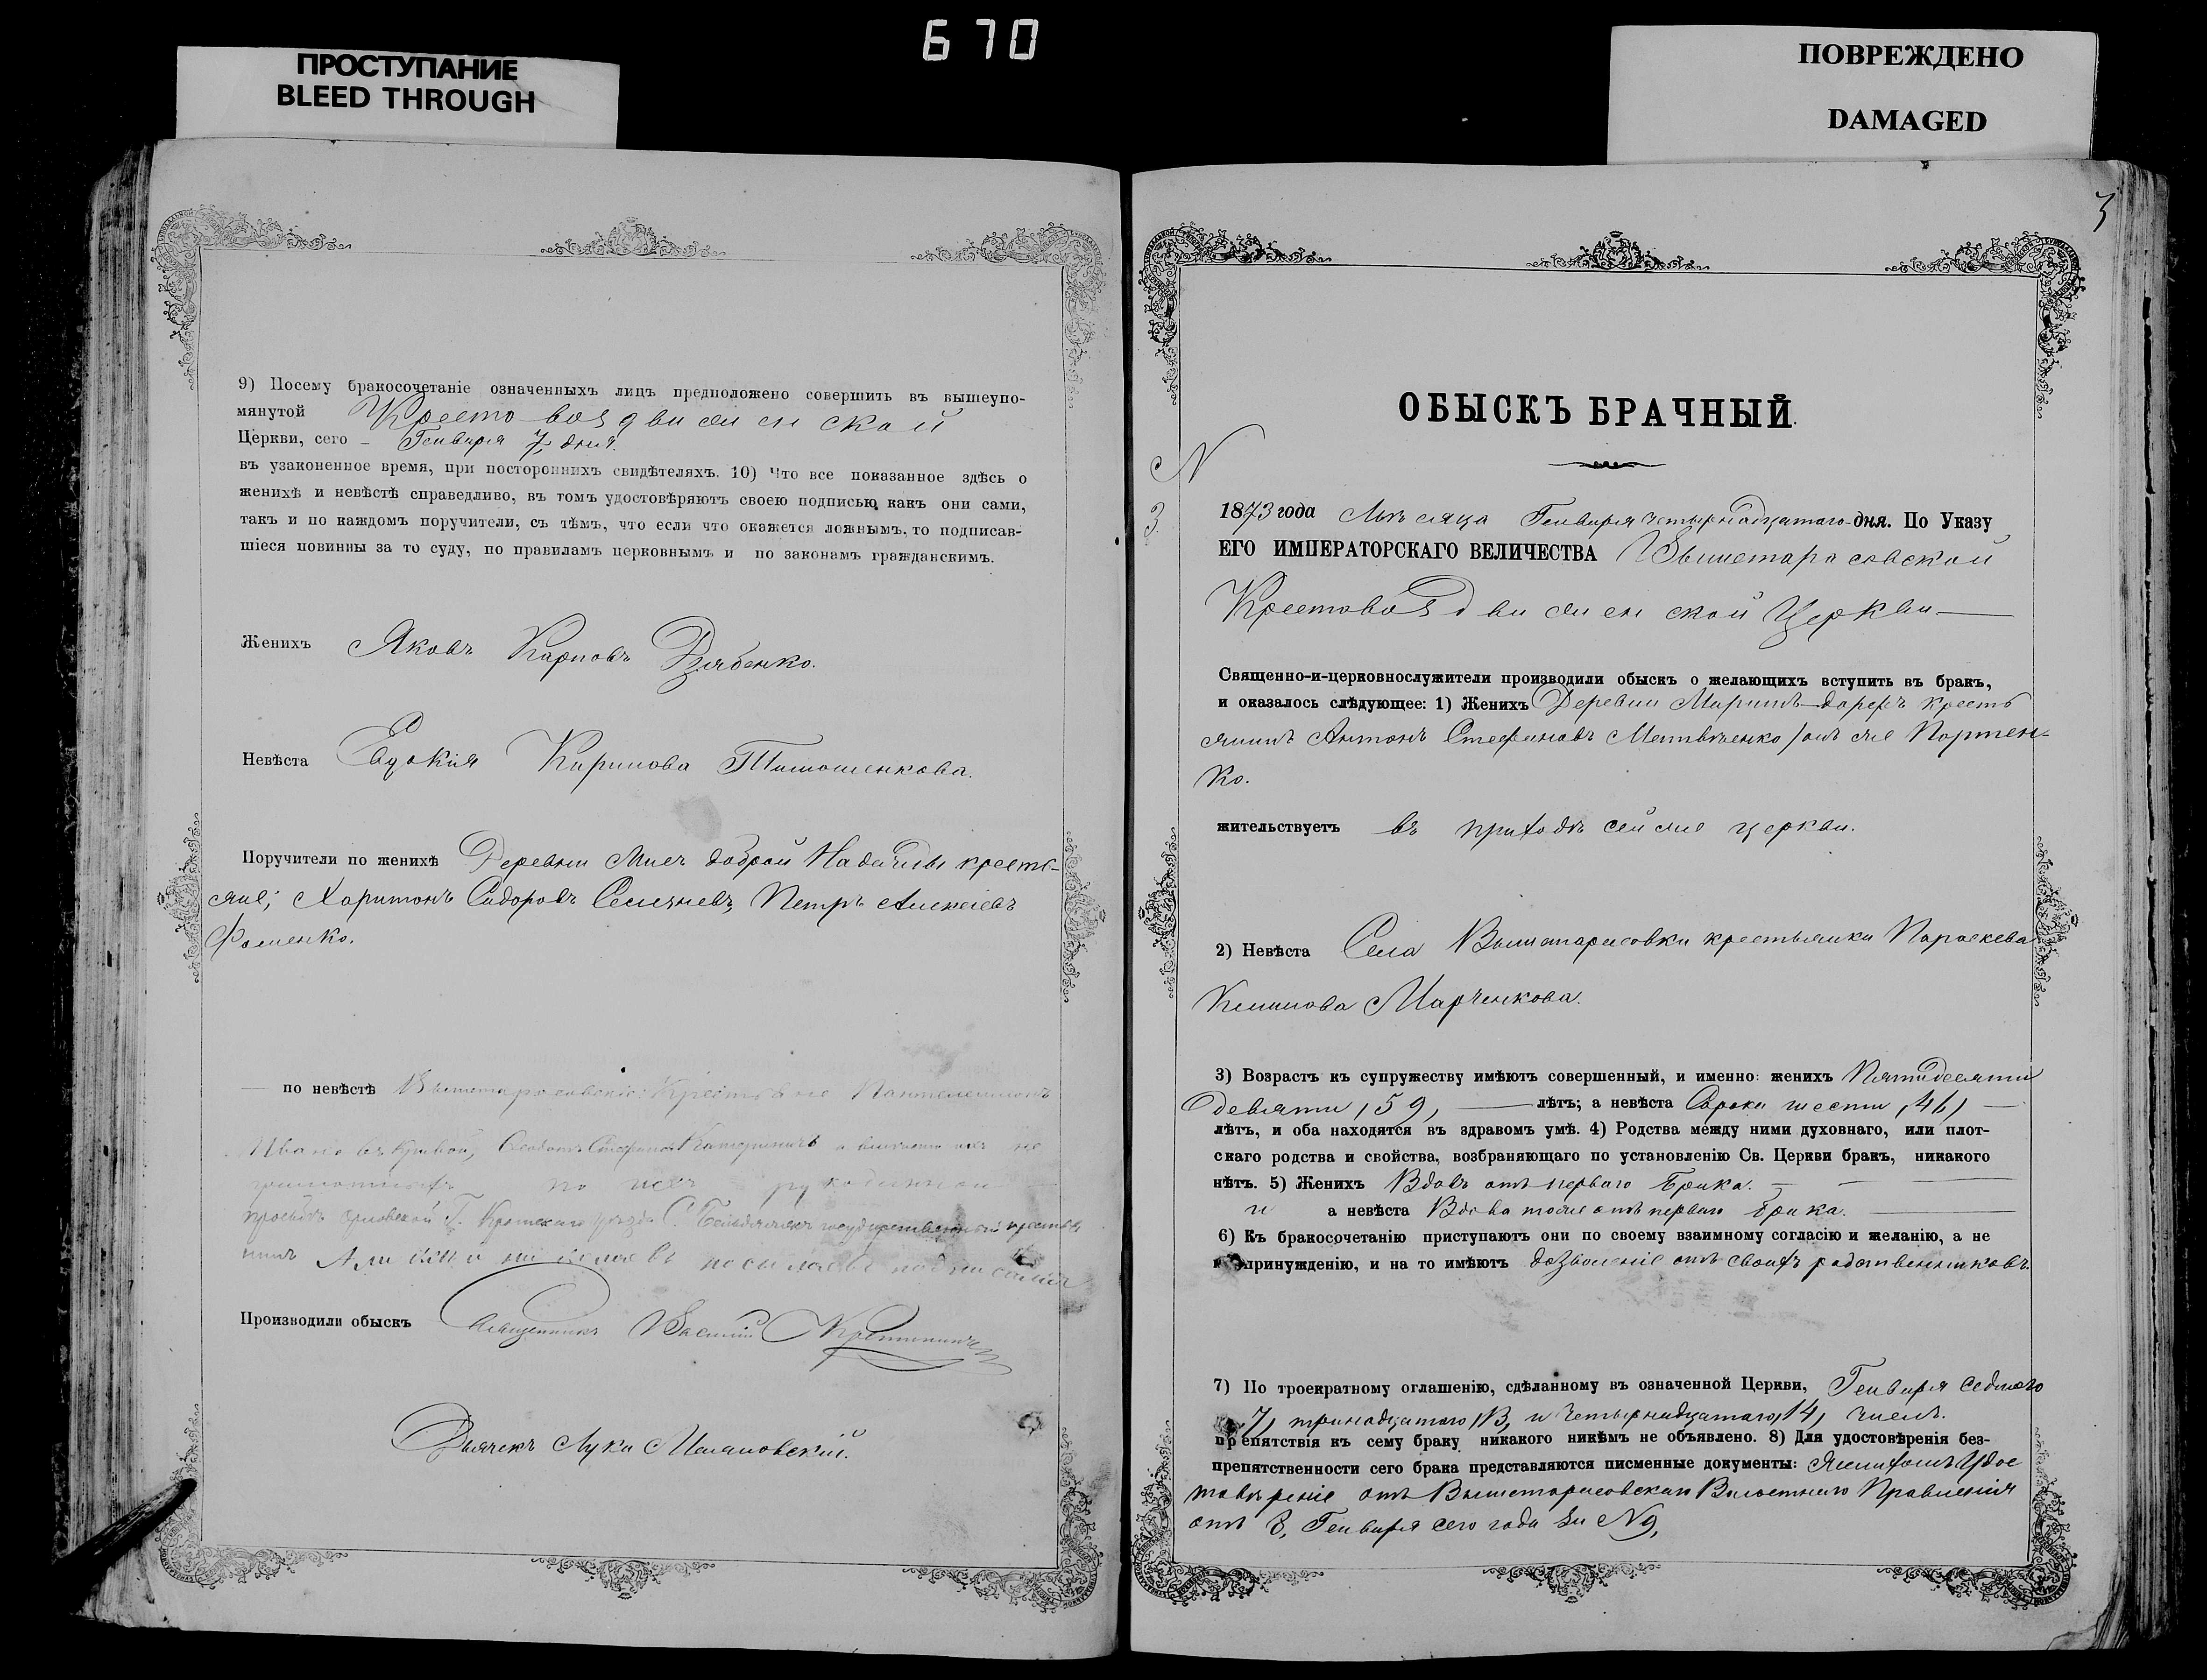 670
ПРОСТУПАНИЕ
BLEED THROUGH
ПОВРЕЖДЕНО
DAMAGED
9) Посему бракосочетаніе означенныхъ лицъ предположено совершить въ вышеупо-
мянутой Крестовоздвиженской
Церкви, сего – Генваря 7, дня.
въ узаконенное время, при постороннихъ свидѣтеляхъ. 10) Что все показанное здѣсь о
женихѣ и невѣстѣ справедливо, въ томъ удостовѣряютъ своею подписью, какъ они сами,
такъ и по каждомъ поручители, съ тѣмъ, что если что окажется ложнымъ, то подписав-
шіеся повинны за то суду, по правиламъ церковнымъ и по законамъ гражданскимъ.
Женихъ Яковъ Карповъ Дзябенко.
Невѣста Евдокія Тимошенкова.
Поручители по женихѣ Деревни доброй Надежды кресть-
яне; Харитонъ Сидоровъ Петръ Алексіевъ
Фоменко.
— по невѣстѣ Вышетарасовскіе: Крестьяне Пантелеимонъ
Ивановъ Кривой,
по ихъ
просьбѣ Орловской Г. уѣзда С. государственный крестья
нинъ
Производили обыскъ Священникъ Василій
Дьячекъ Лука
3
ОБЫСКЪ БРАЧНЫЙ.
N
3.
1873 года Мѣсяца Генваря четырнадцатаго дня. По Указу
ЕГО ИМПЕРАТОРСКАГО ВЕЛИЧЕСТВА Вышетарасовской
Крестовоздвиженской Церкви —
Священно-и-церковнослужители производили обыскъ о желающихъ вступить въ бракъ,
и оказалось слѣдующее: 1) Женихъ Деревни кресть
янинъ Антонъ Стефановъ Матвѣенко /онъ же Портен-
ко.
жительствуетъ въ приходѣ сей же церкви.
2) Невѣста Села Вышетарасовки крестьянка Параскева
Климова Марченкова.
3) Возрастъ къ супружеству имѣютъ совершенный, и именно: женихъ Пятидесяти
девяти, 59, — лѣтъ; а невѣста Сорока шести, 46, —
лѣтъ, и оба находятся въ здравомъ умѣ. 4) Родства между ними духовнаго, или плот-
скаго родства и свойства, возбраняющаго по установленію Св. Церкви бракъ, никакого
нѣтъ. 5) Женихъ Вдовъ отъ перваго брака. —
и а невѣста Вдова тоже отъ перваго брака. —
6) Къ бракосочетанію приступаютъ они по своему взаимному согласію и желанію, а не
по принужденію, и на то имѣютъ дозволеніе отъ своихъ родственниковъ.
7) По троекратному оглашенію, сдѣланному въ означенной Церкви, Генваря седмого
7, тринадцатаго, 13, и четырнадцатаго, 14, числъ.
препятствія къ сему браку никакого никѣмъ не объявлено. 8) Для удостовѣренія без-
препятственности сего брака представляются писменные документы: Удос
товѣреніе отъ Вышетарасовскаго Волостнаго Правленія
отъ 8, Генваря сего года за N 9,